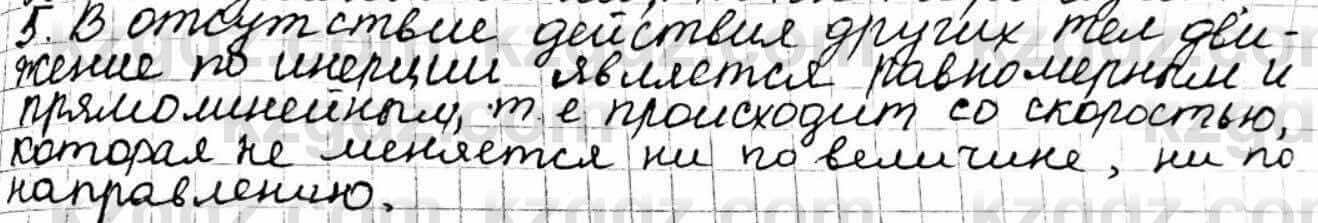 5. В отсутствие действия других тел дви-
жение по инерции является равномерным и
прямолинейным, т. е происходит со скоростью,
которая не меняется ни по величине, ни по
направлению.